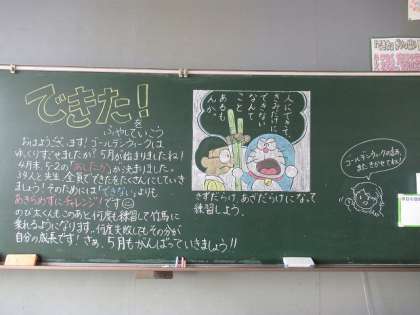 できた!
を
ふやしていこう
おはようございます!ゴールデンウィークは
ゆっくりすごせましたか?5月が始まりましたね!
4月末、5-2の「あしたか」が決まりました。
39人と先生 全員でできたをたくさんにしていき
ましょう!そのためには「できない」よりも
あきらめずにチャレンジ!です
のび太くんもこのあと何度も練習して竹馬に
乗れるようになります。何度失敗してもその分が
自分の成長です!さぁ、5月もがんばっていきましょう!!
人にできて
きみだけに
できない
なんて
こと
あるも
んか。
きずだらけ、あざだらけになって
練習しよう。
ゴールデンウィークの話を、
またきかせてね!